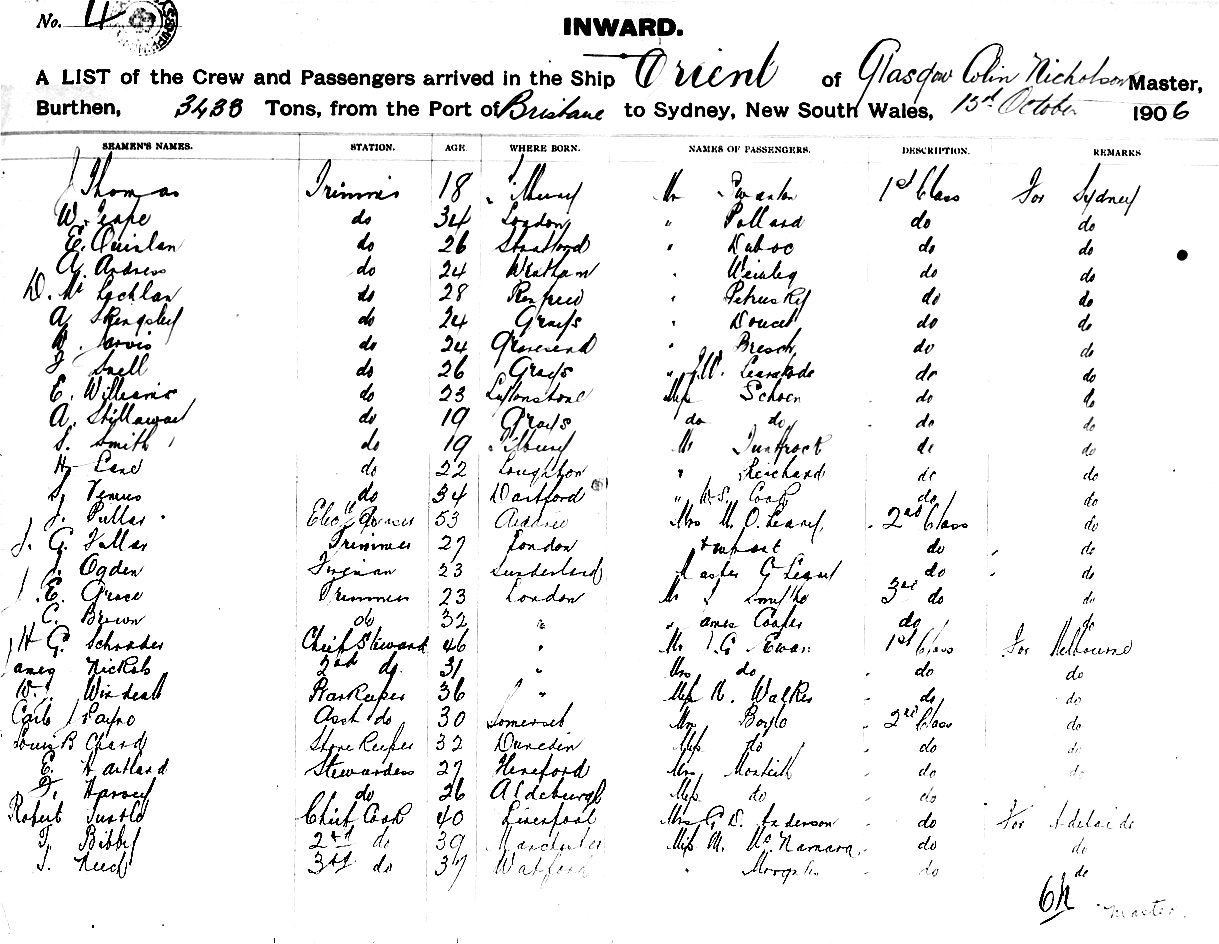 No. 4
INWARD.
A LIST of the Crew and Passengers arrived in the Ship Orient of Glasgow Colin Nicholson Master,
Burthen, 3438 Tons, from the Port of Brisbane to Sydney, New South Wales, 13th October 1906
SEAMEN'S NAMES. STATION. AGE. WHERE BORN. NAMES OF PASSENGERS. DESCRIPTION. REMARKS
J Thomas Trimmer 18 Mr Swanton 1st Class For Sydney
W. do 34 London " Pollard do do
E. Quinlan do 26 Stratford " Duboc do do
A. Andress do 24 Wrotham " do do
D. Mc Lachlan do 28 Renfrew " Petrusky do do
A. Skingsley do 24 Grays " Doucet do do
Jarvis do 24 Gravesend " Bresch do do
Snell do 26 Grays " J.W. do do
E. Williams do 23 Leytonstone Miss Schoen do do
A. Stillaway do 19 Grays do do do do
S. Smith do 19 Tilbury Mr do do
H. Lane do 22 Loughton " Reichard do do
Venus do 34 Dartford " Cook do do
J. Pullar Elecl 53 Airdrie Mrs M. O. Leary 2nd Class do
J. G. Trimmer 27 London & infant do do
J. Ogden Fireman 23 Sunderland Master G Leary do do
E. Grace Trimmer 23 London Mr 3rd do do
C. Brown do 32 " James Cooper do do
H G. Schrader Chief Steward 46 " Mr Ewan 1st Class For Melbourne
James Nickols 2nd do 31 " Mrs do do do
W. J. Windeatt Barkeeper 36 " Miss N. Walker do do
Payne Asst do 30 Somerset Mrs Boyle 2nd Class do
Louis B Chard Storekeeper 32 Dunedin Miss do do do
E. Hartland Stewardess 27 Hereford Mrs Monteith do do
F. Harvey do 26 Aldeburgh Miss do do do
Robert Chief Cook 40 Liverpool Mrs G. D. Anderson do For Adelaide
F. Bibby 2nd do 39 Manchester Miss M. McNamara do do
T. 3rd do 37 Watford " do do
Master.